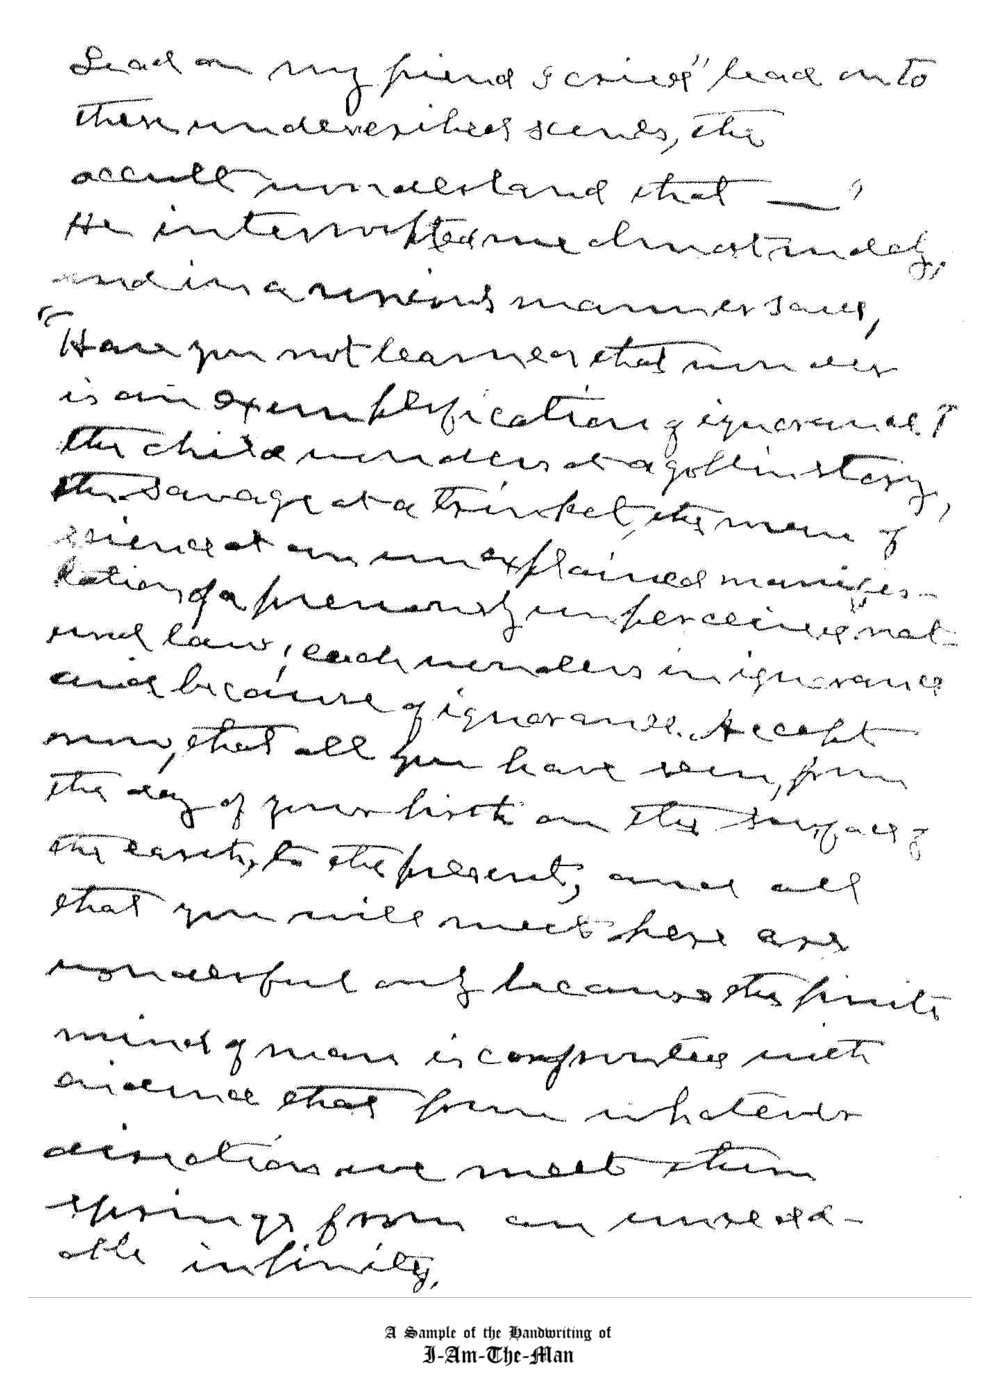 Lead on my friend I cried" lead on to
these undescribed scenes, the
occult wonderland that — "
He interrupted me almost rudely,
and in a serious manner said,
"Have you not learned that wonder
is an exemplification of ignorance?
the child wonders at a goblin story,
the savage at a trinket, the man of
science at an unexplained manifes-
tation of a previously unperceived nat-
ural law; each wonders in ignorance
and because of ignorance. Accept
now, that all you have seen, from
the day of your birth on the surface of
the earth, to the present, and all
that you will meet here are
wonderful only because the finite
mind of man is confronted with
evidence that from whatever
direction we meet them
springs from an unread-
able infinity.
A Sample of the Handwriting of
I-Am-The-Man